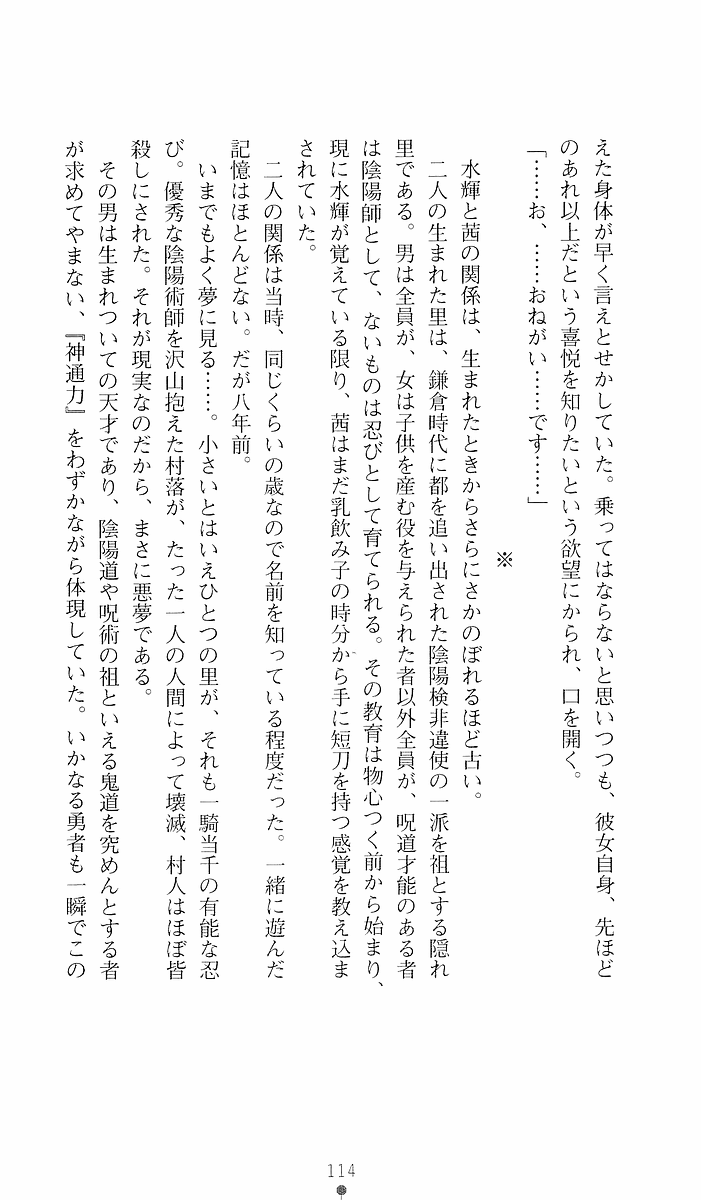 えた身体が早く言えとせかしていた。乗ってはならないと思いつつも、彼女自身、先ほど
のあれ以上だという喜悦を知りたいという欲望にかられ、口を開く。
「……お、……おねがい……です……」
※
水輝と茜の関係は、生まれたときからさらにさかのぼれるほど古い。
二人の生まれた里は、鎌倉時代に都を追い出された陰陽検非違使の一派を祖とする隠れ
里である。男は全員が、女は子供を産む役を与えられた者以外全員が、呪道才能のある者
は陰陽師として、ないものは忍びとして育てられる。その教育は物心つく前から始まり、
現に水輝が覚えている限り、茜はまだ乳飲み子の時分から手に短刀を持つ感覚を教え込ま
されていた。
二人の関係は当時、同じくらいの歳なので名前を知っている程度だった。一緒に遊んだ
記憶はほとんどない。だが八年前。
いまでもよく夢に見る……。小さいとはいえひとつの里が、それも一騎当千の有能な忍
び。優秀な陰陽術師を沢山抱えた村落が、たった一人の人間によって壊滅、村人はほぼ皆
殺しにされた。それが現実なのだから、まさに悪夢である。
その男は生まれついての天才であり、陰陽道や呪術の祖といえる鬼道を究めんとする者
が求めてやまない、『神通力』をわずかながら体現していた。いかなる勇者も一瞬でこの
114